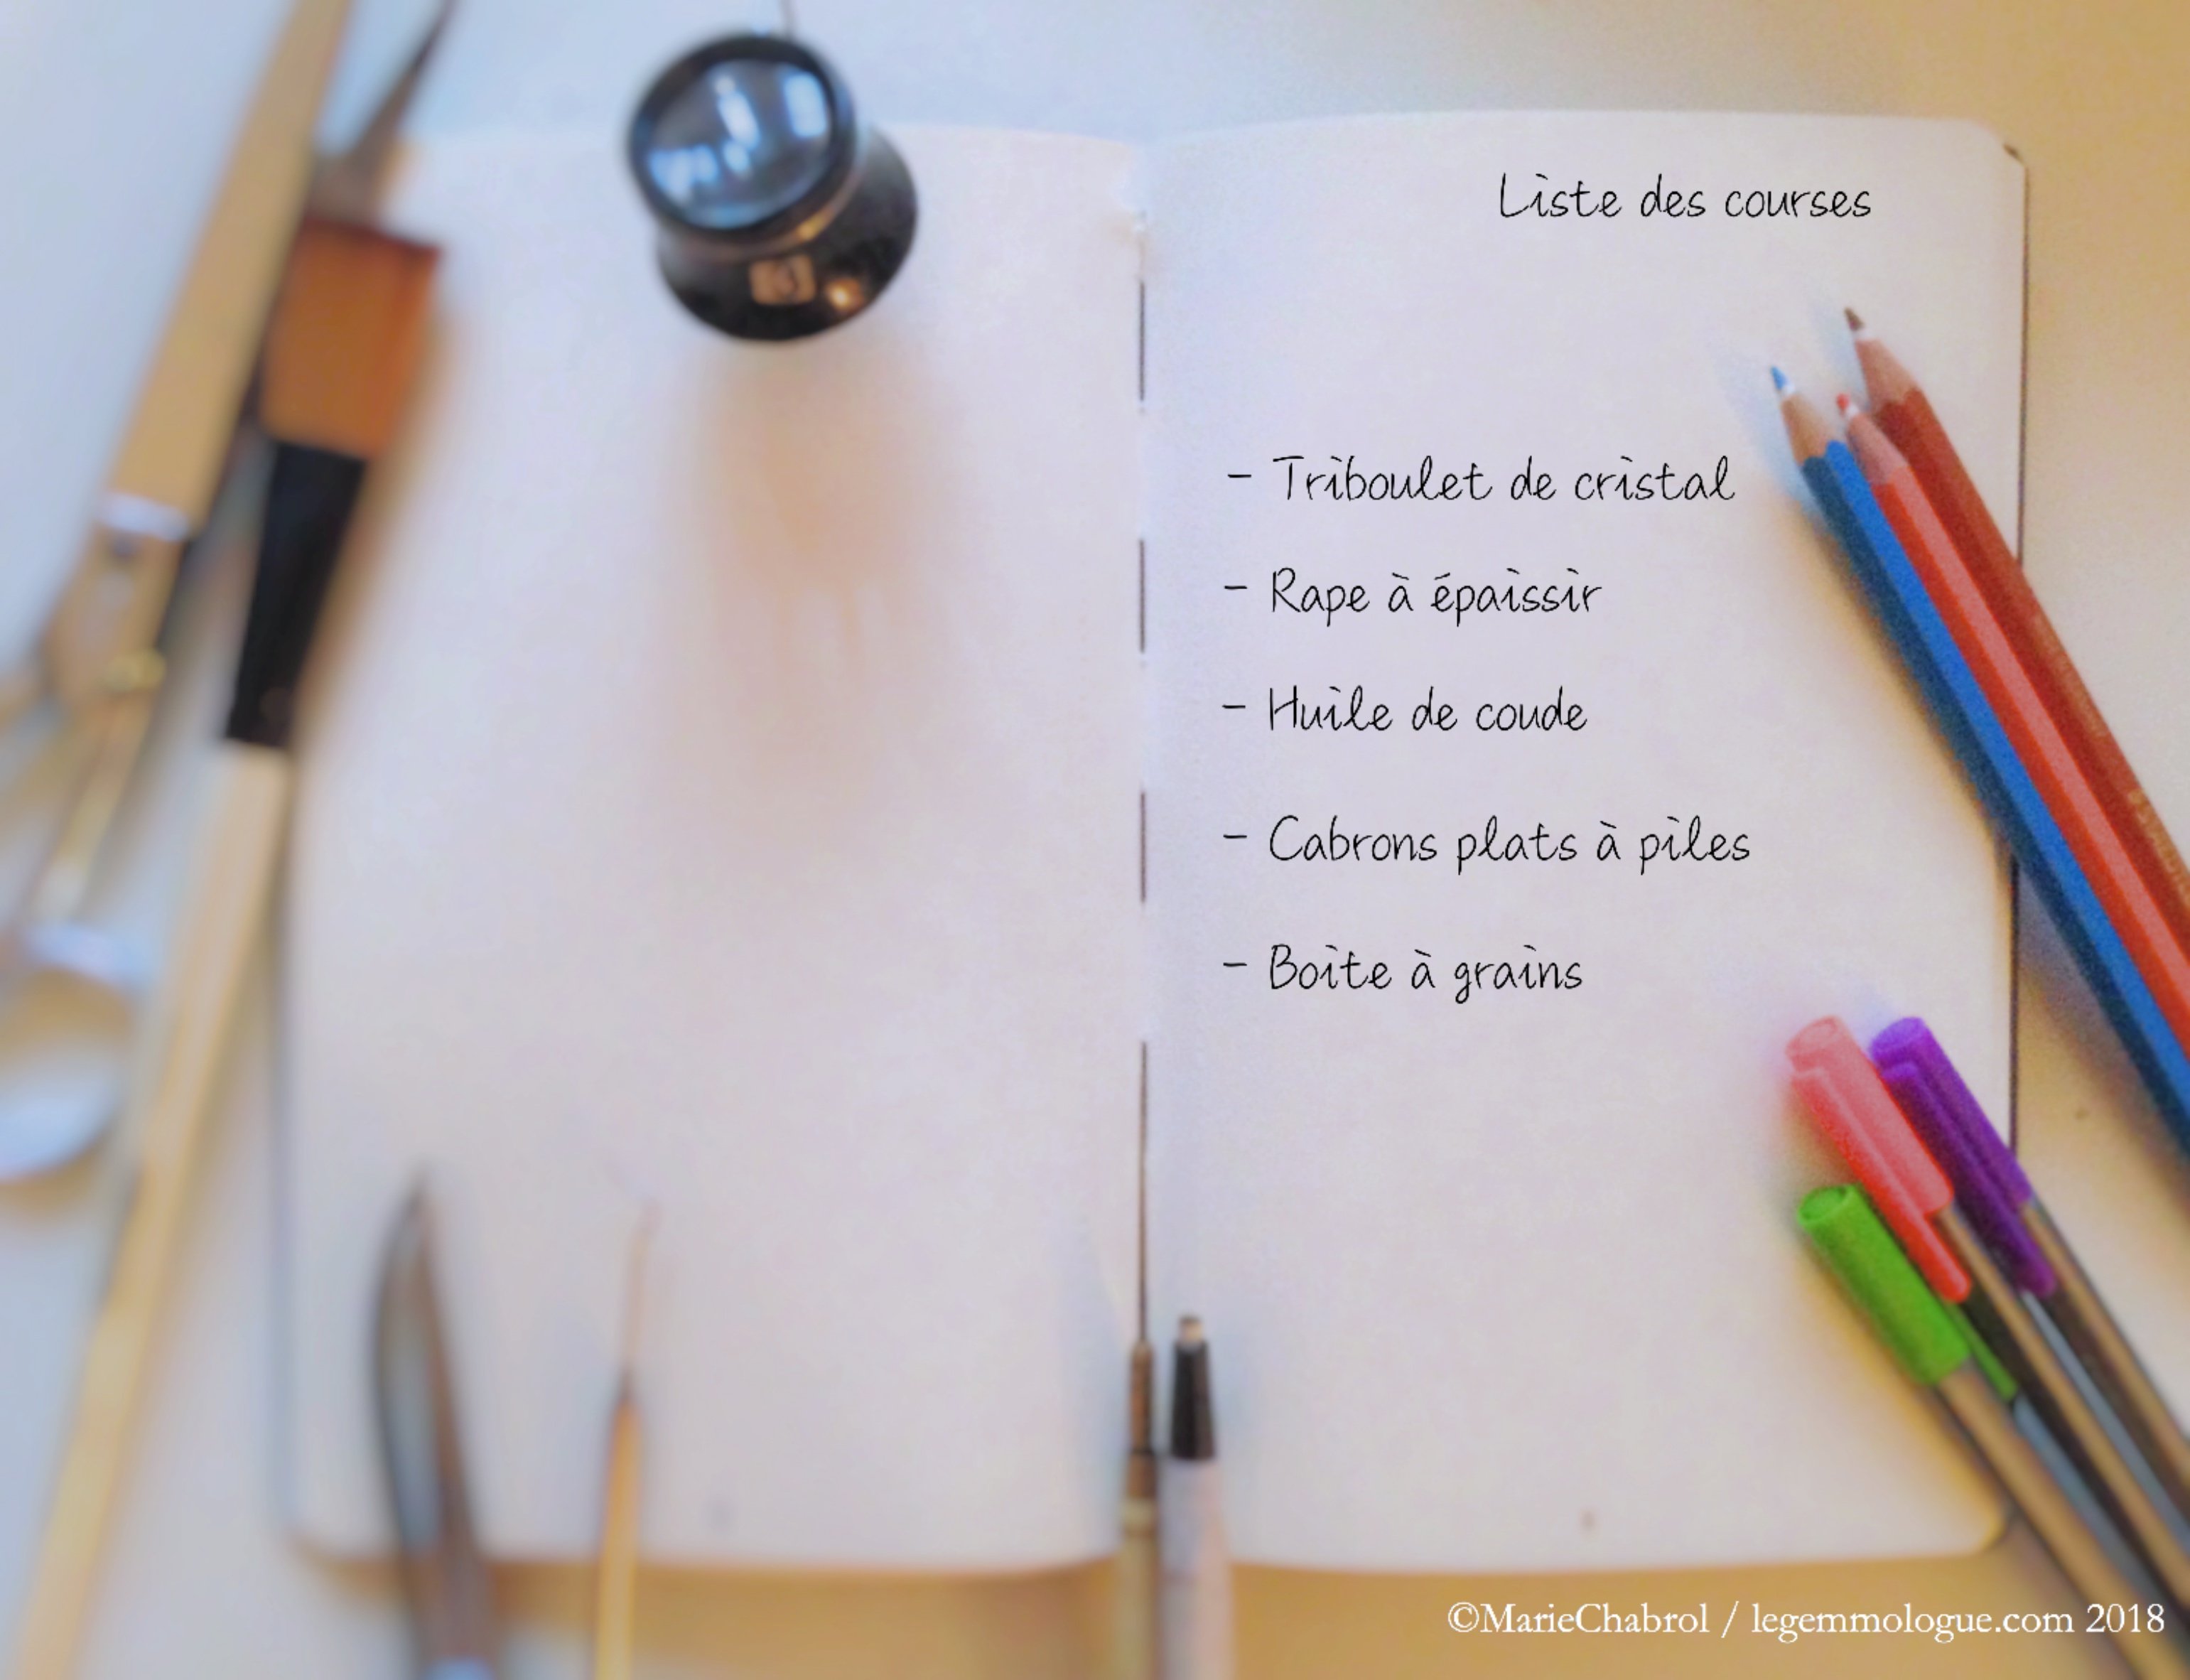 Liste des courses
- Triboulet de cristal
- Rape à épaissir
- Huile de coude
- Cabrons plats à piles
- Boite à grains
©MarieChabrol / legemmologue.com 2018